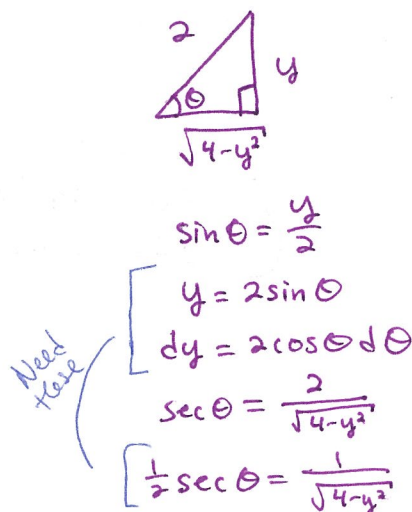 2
y
θ
√4-y²
sin θ = y/2
y = 2 sin θ
dy = 2 cos θ d θ
Need
these
sec θ = 2/√4-y²
1/2 sec θ = 1/√4-y²